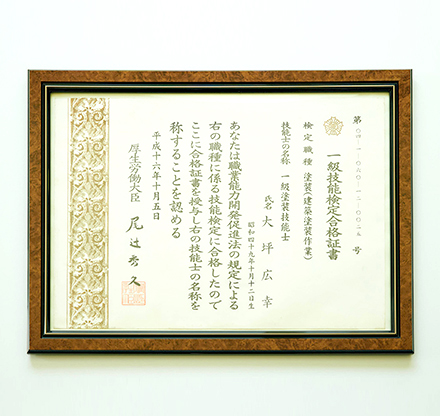 一級技能検定合格証書
検定職種 塗装(建築塗装作業)
技能士の名称 一級塗装技能士
氏名 大坪広幸
昭和四十九年十月十二日生
あなたは職業能力開発促進法の規定による
右の職種に係る技能検定に合格したので
ここに合格証書を授与し右の技能士の名称を
称することを認める
平成十六年十月五日
厚生労働大臣 尾辻秀久